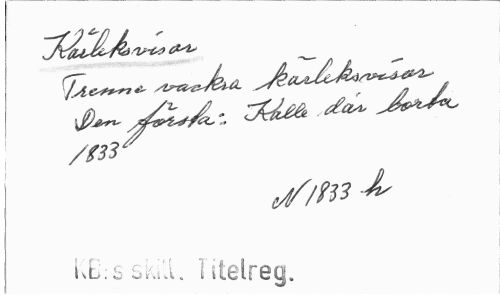 Kärleksvisor
Trenne vackra kärleksvisor
Den första: Kalle där borta
1833
N 1833 h
KB:s skill. Titelreg.